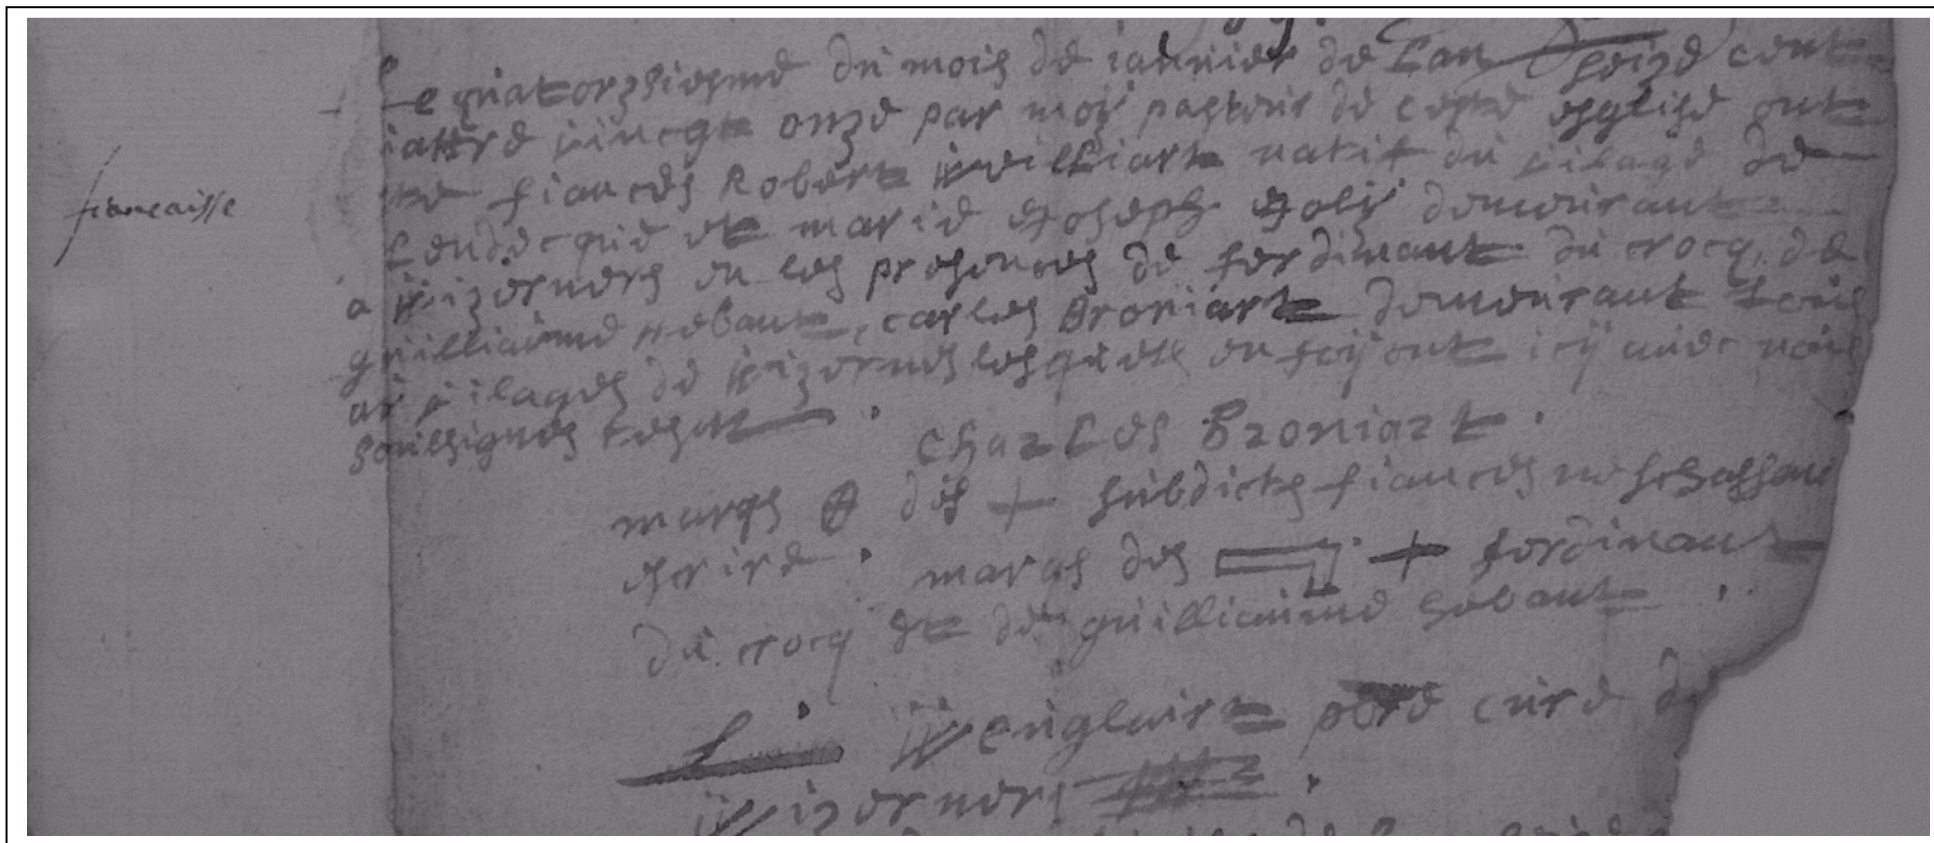 fiancaisse
Le quatorzsiesme du mois de iannier de Lan seize cent
quattre vincgt onze par moy pasteur de ceste esglise ont
esté fiancés Robert Willart natif du vilage de
Lendecque et marie Joseph Joly demeurant
a Wizerners en les presences de ferdinant du crocq, de
guilliaume hobant, carles Broniart demeurant tous
au vilages de Wizernes lesquels en foy ont icy avec nous
soulsignés
Charles Broniart .
marqs des + subdicts fiancés ne schachans
escrire . marqs des + ferdinant
du crocq et de guilliaume hobant
Wenglairt pbre curé de
Wizerners